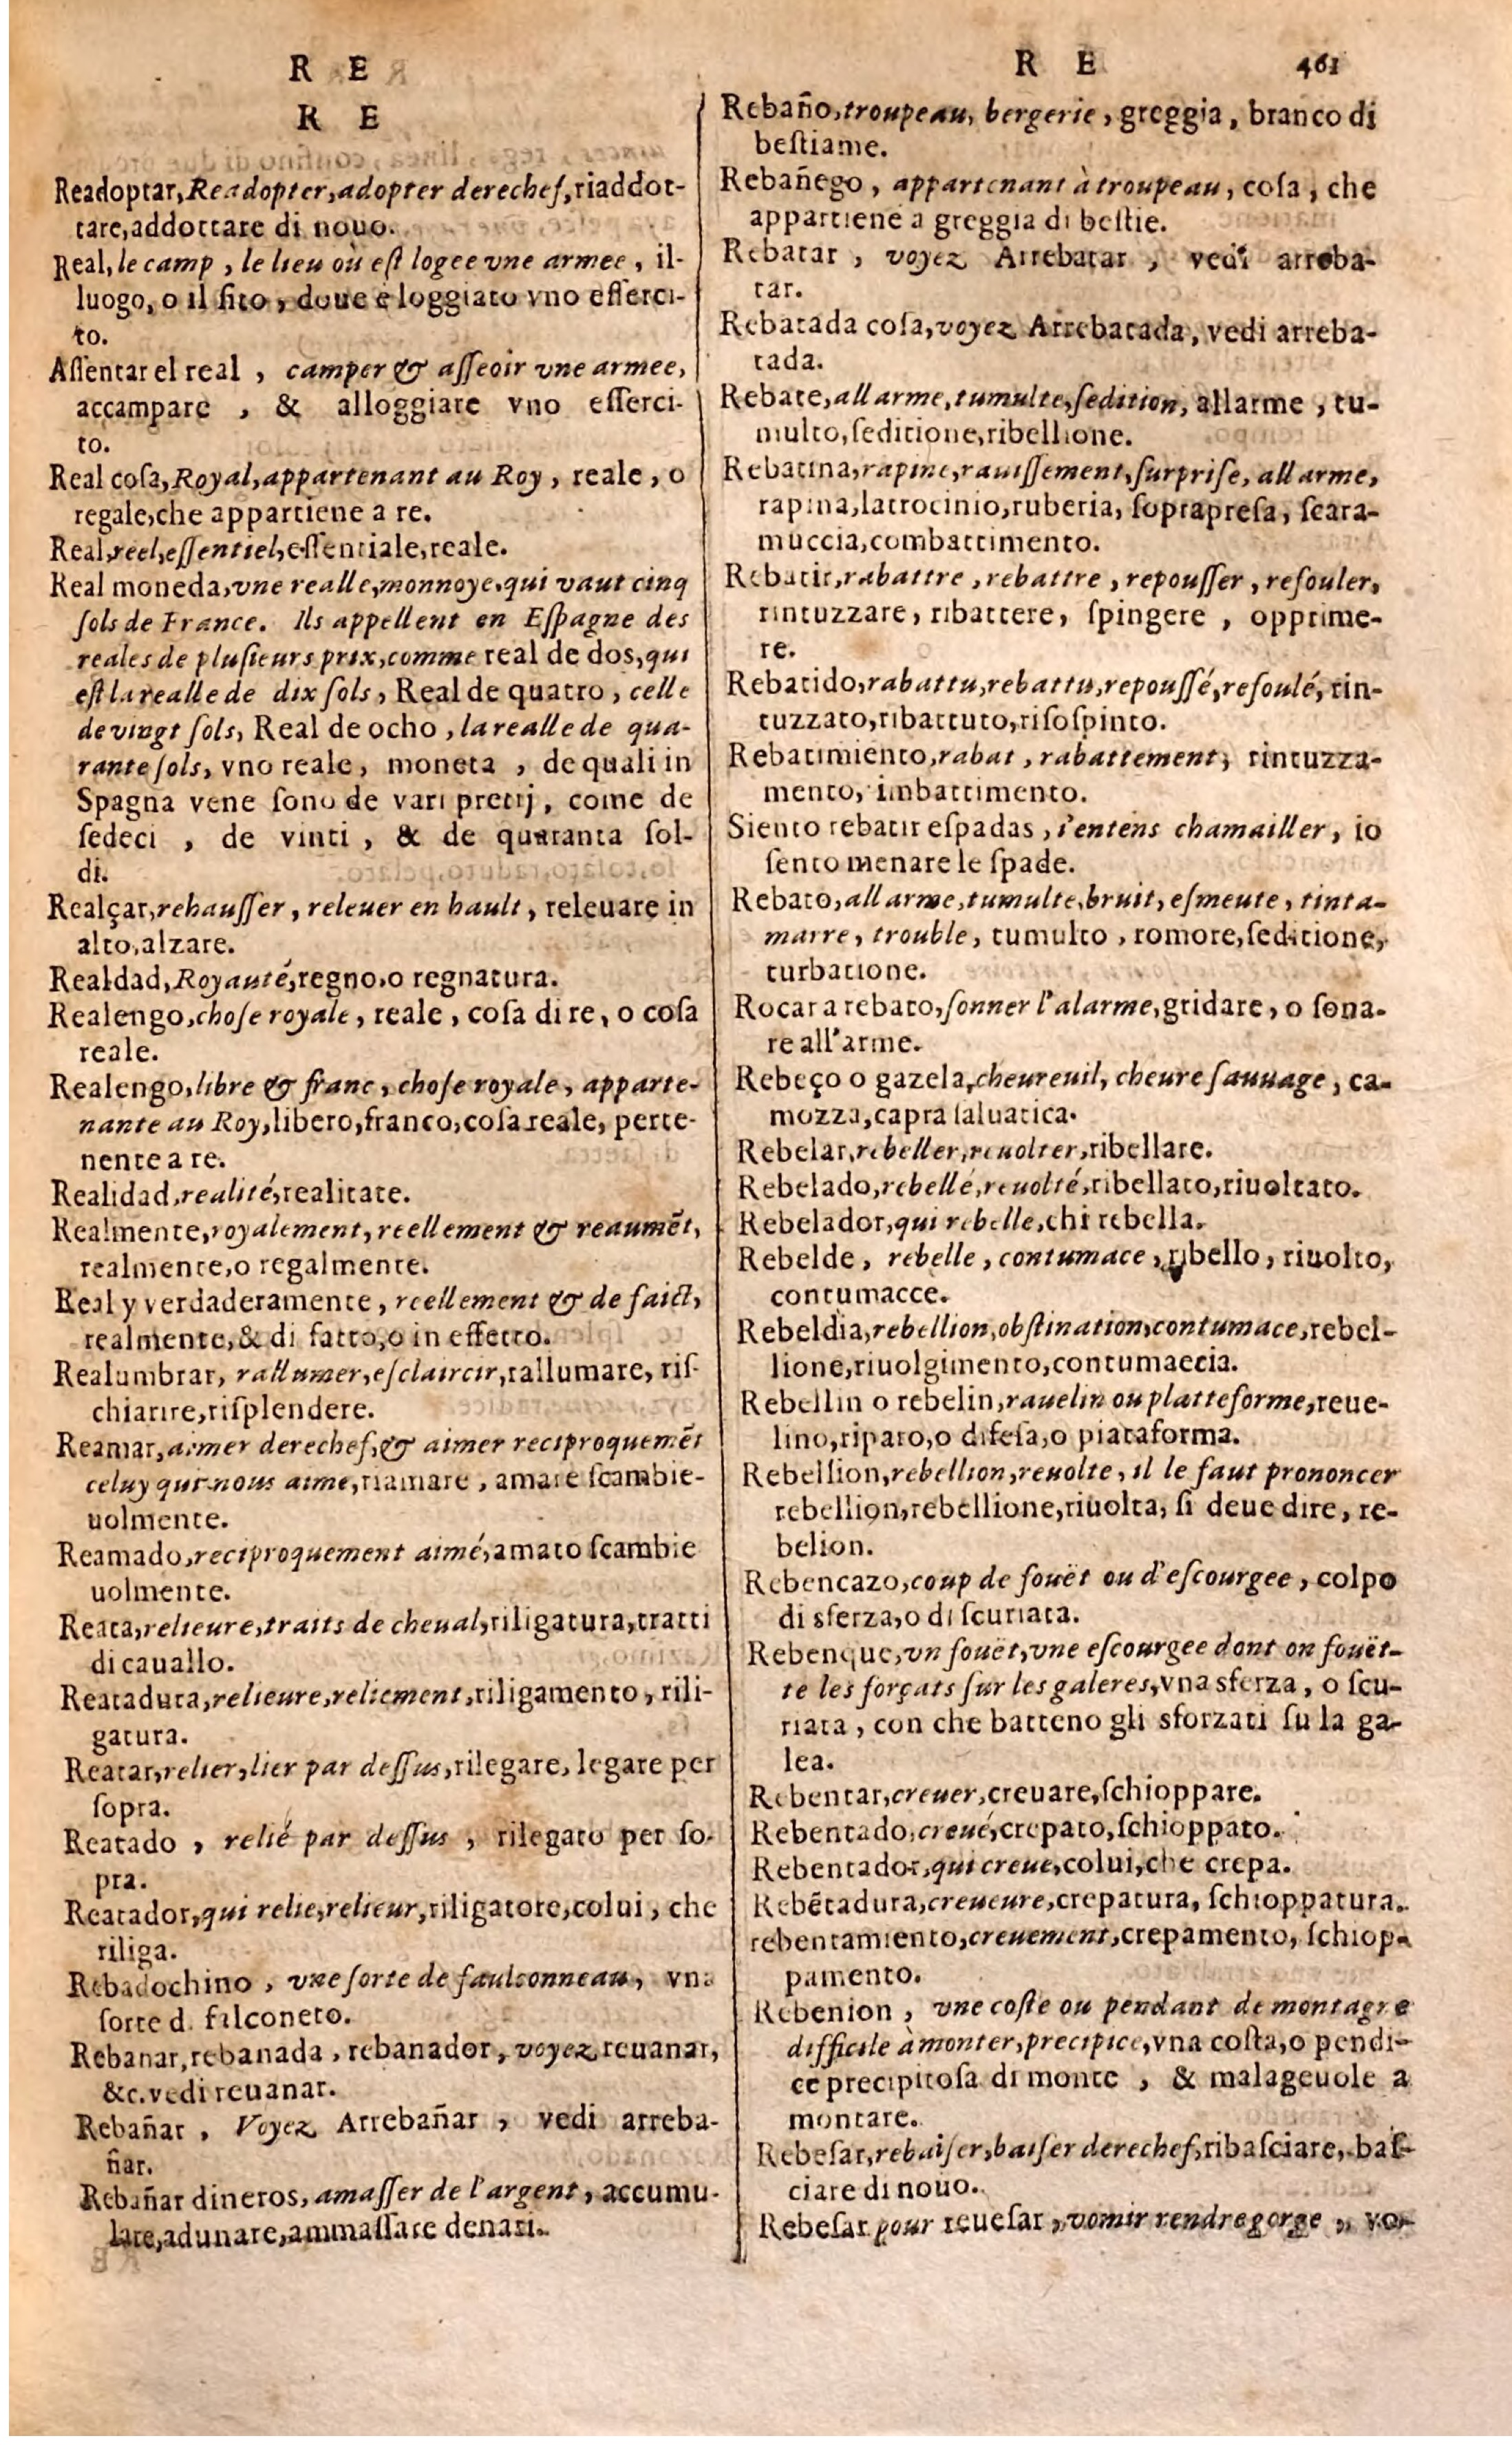 R E
R E
Readoptar, Readopter, adopter derechef, riaddot-
tare, addottare di nouo.
Real, le camp, le lieu où eſt logee vne armee, il-
luogo, o il ſito, doue è loggiato vno eſſerci-
to.
Aſſentar el real, camper & aſſeoir vne armee,
accampare, & alloggiare vno eſſerci-
to.
Real coſa, Royal, appartenant au Roy, reale, o
regale, che appartiene a re.
Real, reel, eſſentiel, eſſentiale, reale.
Real moneda, vne realle, monnoye, qui vaut cinq
ſols de France. Ils appellent en Eſpagne des
reales de pluſieurs prix, comme real de dos, qui
eſt la realle de dix ſols, Real de quatro, celle
de vingt ſols, Real de ocho, la realle de qua-
rante ſols, vno reale, moneta, de quali in
Spagna vene ſono de vari pretij, come de
ſedeci, de vinti, & de quaranta ſol-
di.
Realçar, rehauſſer, releuer en hault, releuare in
alto, alzare.
Realdad, Royauté, regno, o regnatura.
Realengo, choſe royale, reale, coſa di re, o coſa
reale.
Realengo, libre & franc, choſe royale, apparte-
nante au Roy, libero, franco, coſa reale, perte-
nente a re.
Realidad, realité, realitate.
Realmente, royalement, reellement & reaumẽt,
realmente, o regalmente.
Real y verdaderamente, reellement & de faict,
realmente, & di fatto, o in effetto.
Realumbrar, rallumer, eſclaircir, rallumare, riſ-
chiarire, riſplendere.
Reamar, aimer derechef, & aimer reciproquemẽt
celuy qui nous aime, riamare, amare ſcambie-
uolmente.
Reamado, reciproquement aimé, amato ſcambie
uolmente.
Reata, relieure, traits de cheual, riligatura, tratti
di cauallo.
Reatadura, relieure, reliement, riligamento, rili-
gatura.
Reatar, relier, lier par deſſus, rilegare, legare per
ſopra.
Reatado, relié par deſſus, rilegato per ſo-
pra.
Reatador, qui relie, relieur, riligatore, colui, che
riliga.
Rebadochino, vne ſorte de faulconneau, vna
ſorte d. falconeto.
Rebanar, rebanada, rebanador, voyez reuanar,
&c. vedi reuanar.
Rebañar, Voyez Arrebañar, vedi arreba-
ñar.
Rebañar dineros, amaſſer de l'argent, accumu-
lare, adunare, ammaſſare denari.
R E 461
Rebaño, troupeau, bergerie, greggia, branco di
beſtiame.
Rebañego, appartenant à troupeau, coſa, che
appartiene a greggia di beſtie.
Rebatar, voyez Arrebatar, vedi arreba-
tar.
Rebatada coſa, voyez Arrebatada, vedi arreba-
tada.
Rebate, all arme, tumulte, ſedition, allarme, tu-
multo, ſeditione, ribellione.
Rebatina, rapine, rauiſſement, ſurpriſe, all arme,
rapina, latrocinio, ruberia, ſoprapreſa, ſcara-
muccia, combattimento.
Rebatir, rabattre, rebattre, repouſſer, refouler,
rintuzzare, ribattere, ſpingere, opprime-
re.
Rebatido, rabattu, rebattu, repouſſé, refoulé, rin-
tuzzato, ribattuto, riſoſpinto.
Rebatimiento, rabat, rabattement, rintuzza-
mento, imbattimento.
Siento rebatir eſpadas, i'entens chamailler, io
ſento menare le ſpade.
Rebato, all arme, tumulte, bruit, eſmeute, tinta-
marre, trouble, tumulto, romore, ſeditione,
turbatione.
Rocar a rebato, ſonner l'alarme, gridare, o ſona-
re all'arme.
Rebeço o gazela, cheureuil, cheure ſauuage, ca-
mozza, capra ſaluatica.
Rebelar, rebeller, reuolter, ribellare.
Rebelado, rebellé, reuolté, ribellato, riuoltato.
Rebelador, qui rebelle, chi rebella.
Rebelde, rebelle, contumace, ribello, riuolto,
contumacce.
Rebeldia, rebellion, obſtination, contumace, rebel-
lione, riuolgimento, contumaccia.
Rebellin o rebelin, rauelin ou platteforme, reue-
lino, riparo, o difeſa, o piataforma.
Rebellion, rebellion, reuolte, il le faut prononcer
rebellion, rebellione, riuolta, ſi deue dire, re-
belion.
Rebencazo, coup de fouët ou d'eſcourgee, colpo
di sferza, o di ſcuriata.
Rebenque, vn fouët, vne eſcourgee dont on fouët-
te les forçats ſur les galeres, vna sferza, o ſcu-
riata, con che batteno gli sforzati ſu la ga-
lea.
Rebentar, creuer, creuare, ſchioppare.
Rebentado, creué, crepato, ſchioppato.
Rebentador, qui creue, colui, che crepa.
Rebẽtadura, creueure, crepatura, ſchioppatura.
rebentamiento, creuement, crepamento, ſchiop-
pamento.
Rebenion, vne coſte ou pendant de montagne
difficile à monter, precipice, vna coſta, o pendi-
ce precipitoſa di monte, & malageuole a
montare.
Rebeſar, rebaiſer, baiſer derechef, ribaſciare, baſ-
ciare di nouo.
Rebeſar pour reueſar, vomir rendre gorge, vo-